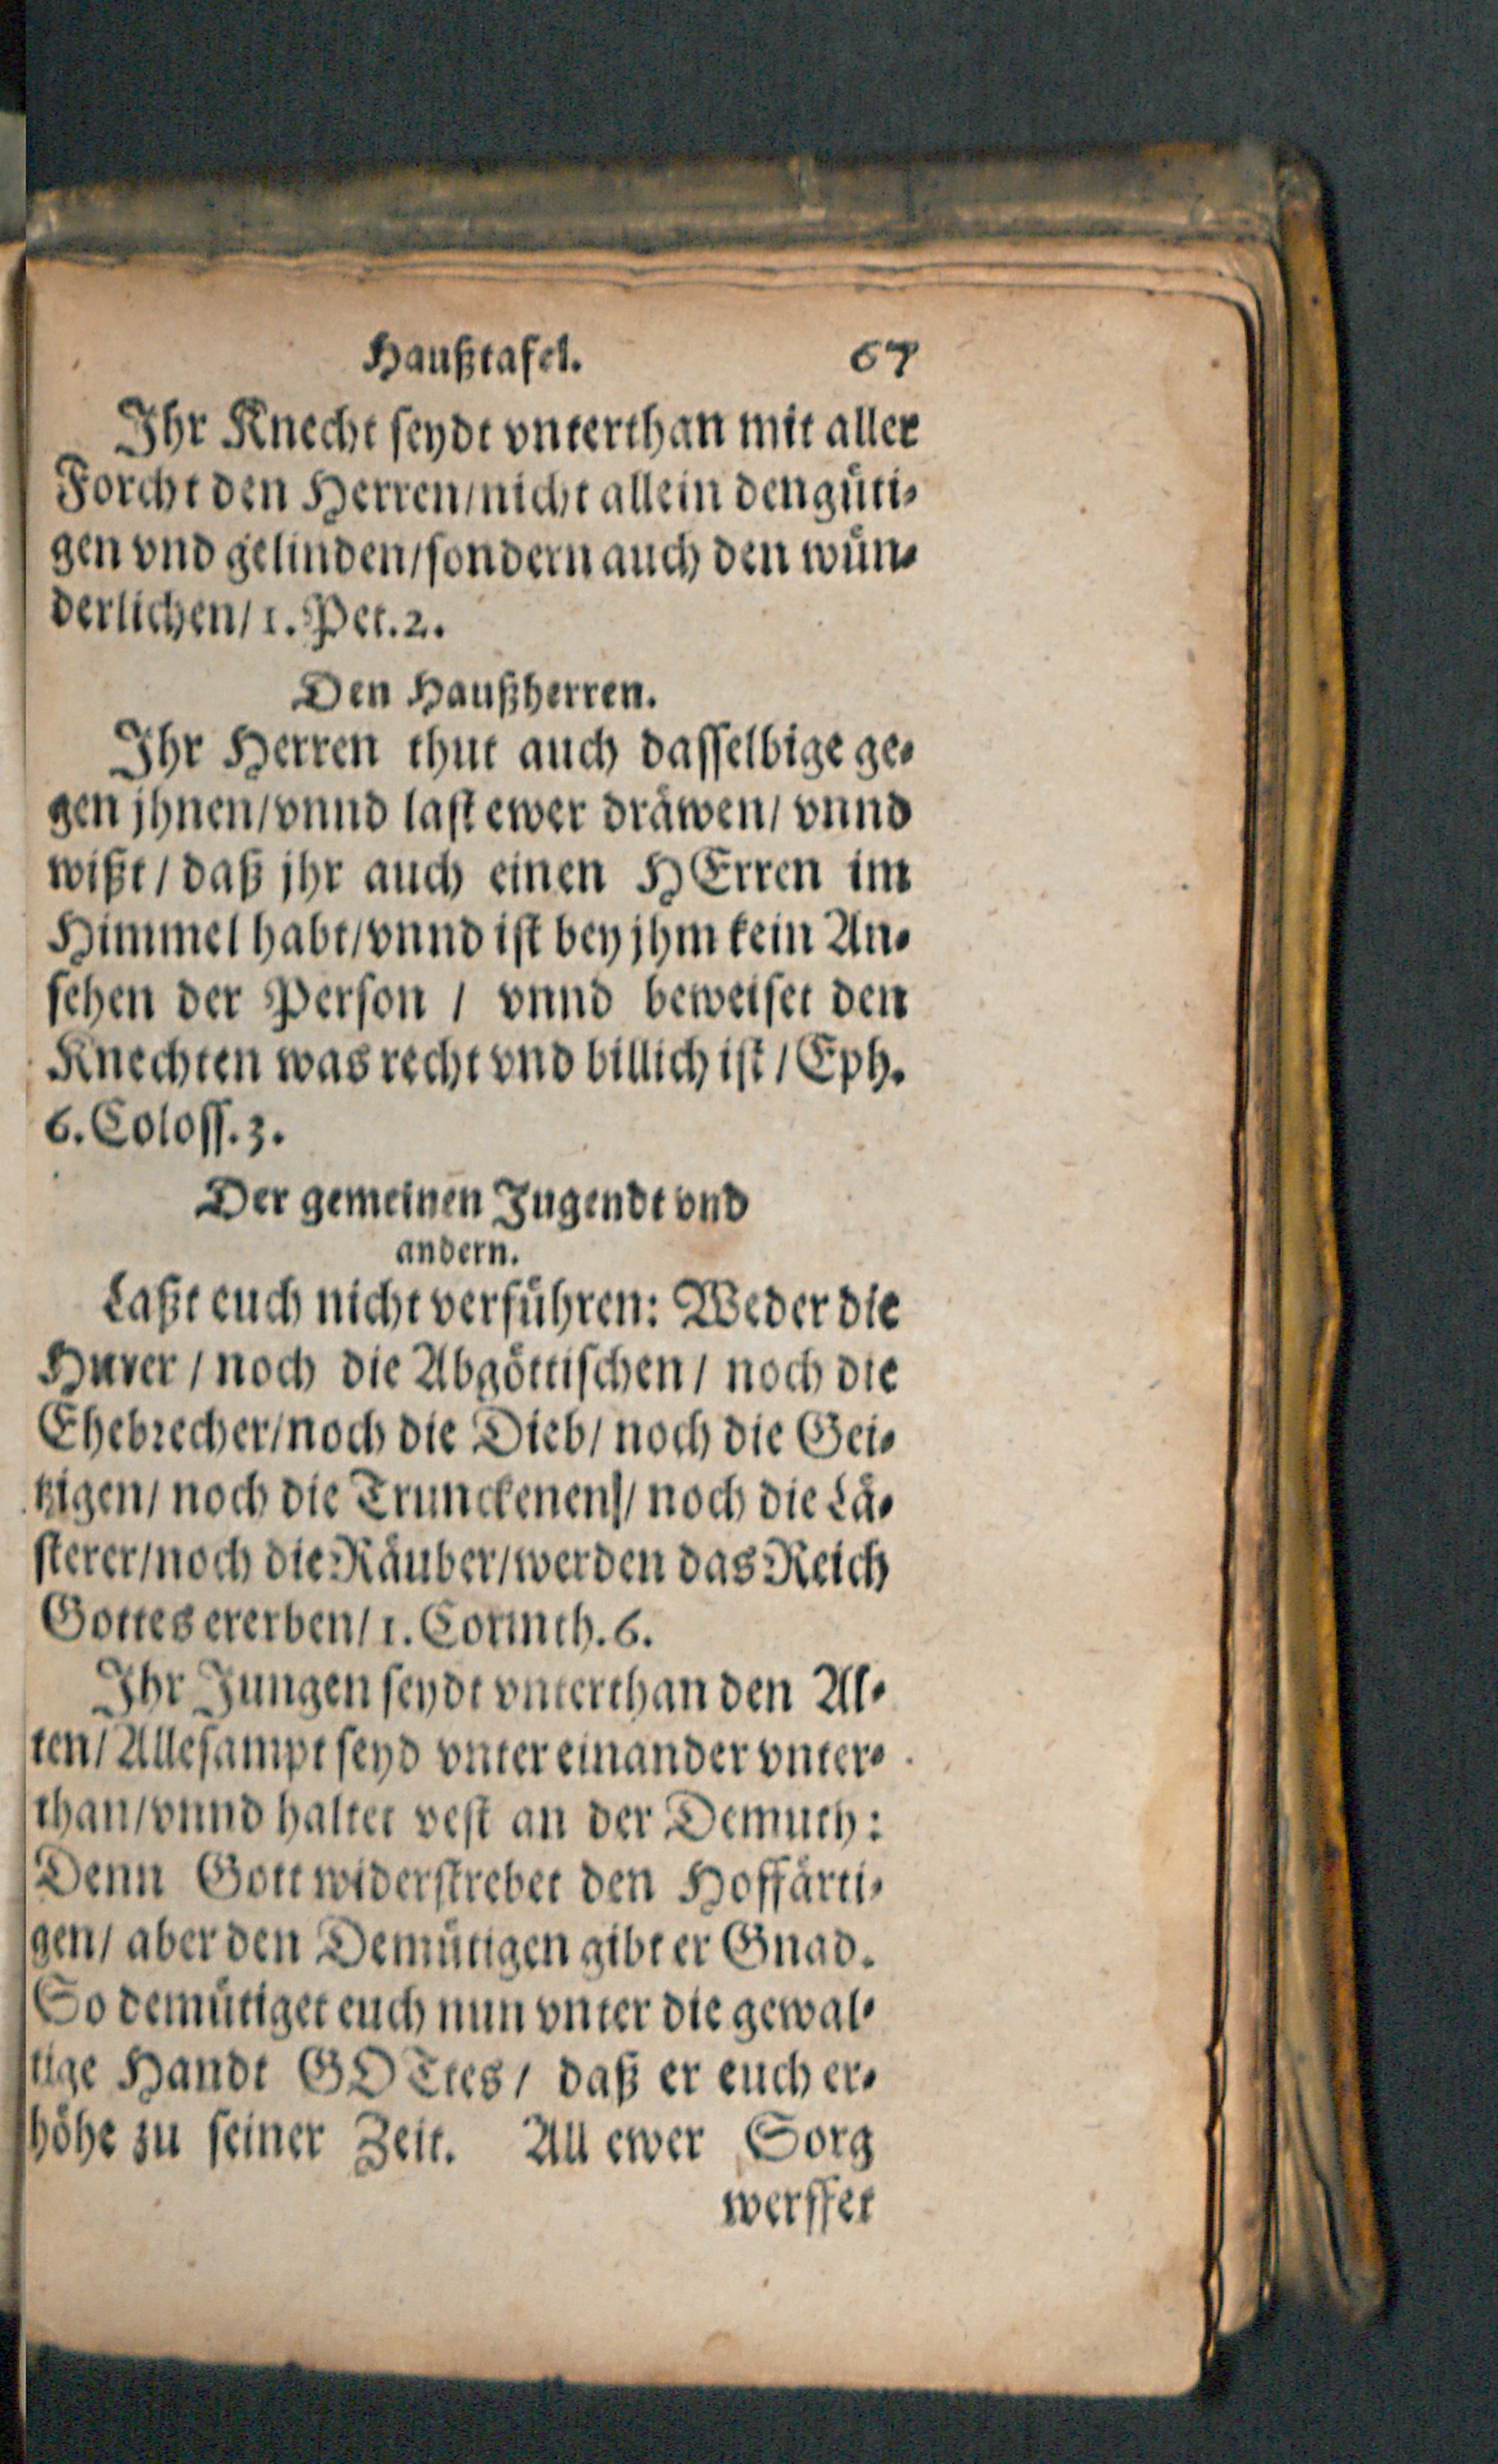 Haußtafel. 67
Ihr Knecht seydt vnterthan mit aller
Forcht den Herren/nicht allein den güti-
gen vnd gelinden/sondern auch den wün-
derlichen/ 1. Pet. 2.
Den Haußherren.
Ihr Herren thut auch dasselbige ge-
gen jhnen/vnnd last ewer dräwen/ vnnd
wißt / daß jhr auch einen HErren im
Himmel habt/vnnd ist bey jhm kein An-
sehen der Person / vnnd beweiset den
Knechten was recht vnd billich ist / Eph.
6. Coloss. 3.
Der gemeinen Jugendt vnd
andern.
Laßt euch nicht verführen: Weder die
Hurer / noch die Abgöttischen / noch die
Ehebrecher/noch die Dieb/ noch die Gei-
tzigen/ noch die Trunckenen/ noch die Lä-
sterer/noch die Räuber/werden das Reich
Gottes ererben/ 1. Corinth. 6.
Ihr Jungen seydt vnterthan den Al-
ten/ Allesampt seyd vnter einander vnter-
than/vnnd haltet vest an der Demuth:
Denn Gott widerstrebet den Hoffärti-
gen/ aber den Demütigen gibt er Gnad.
So demütiget euch nun vnter die gewal-
tige Handt GOTtes / daß er euch er-
höhe zu seiner Zeit. All ewer Sorg
werffet